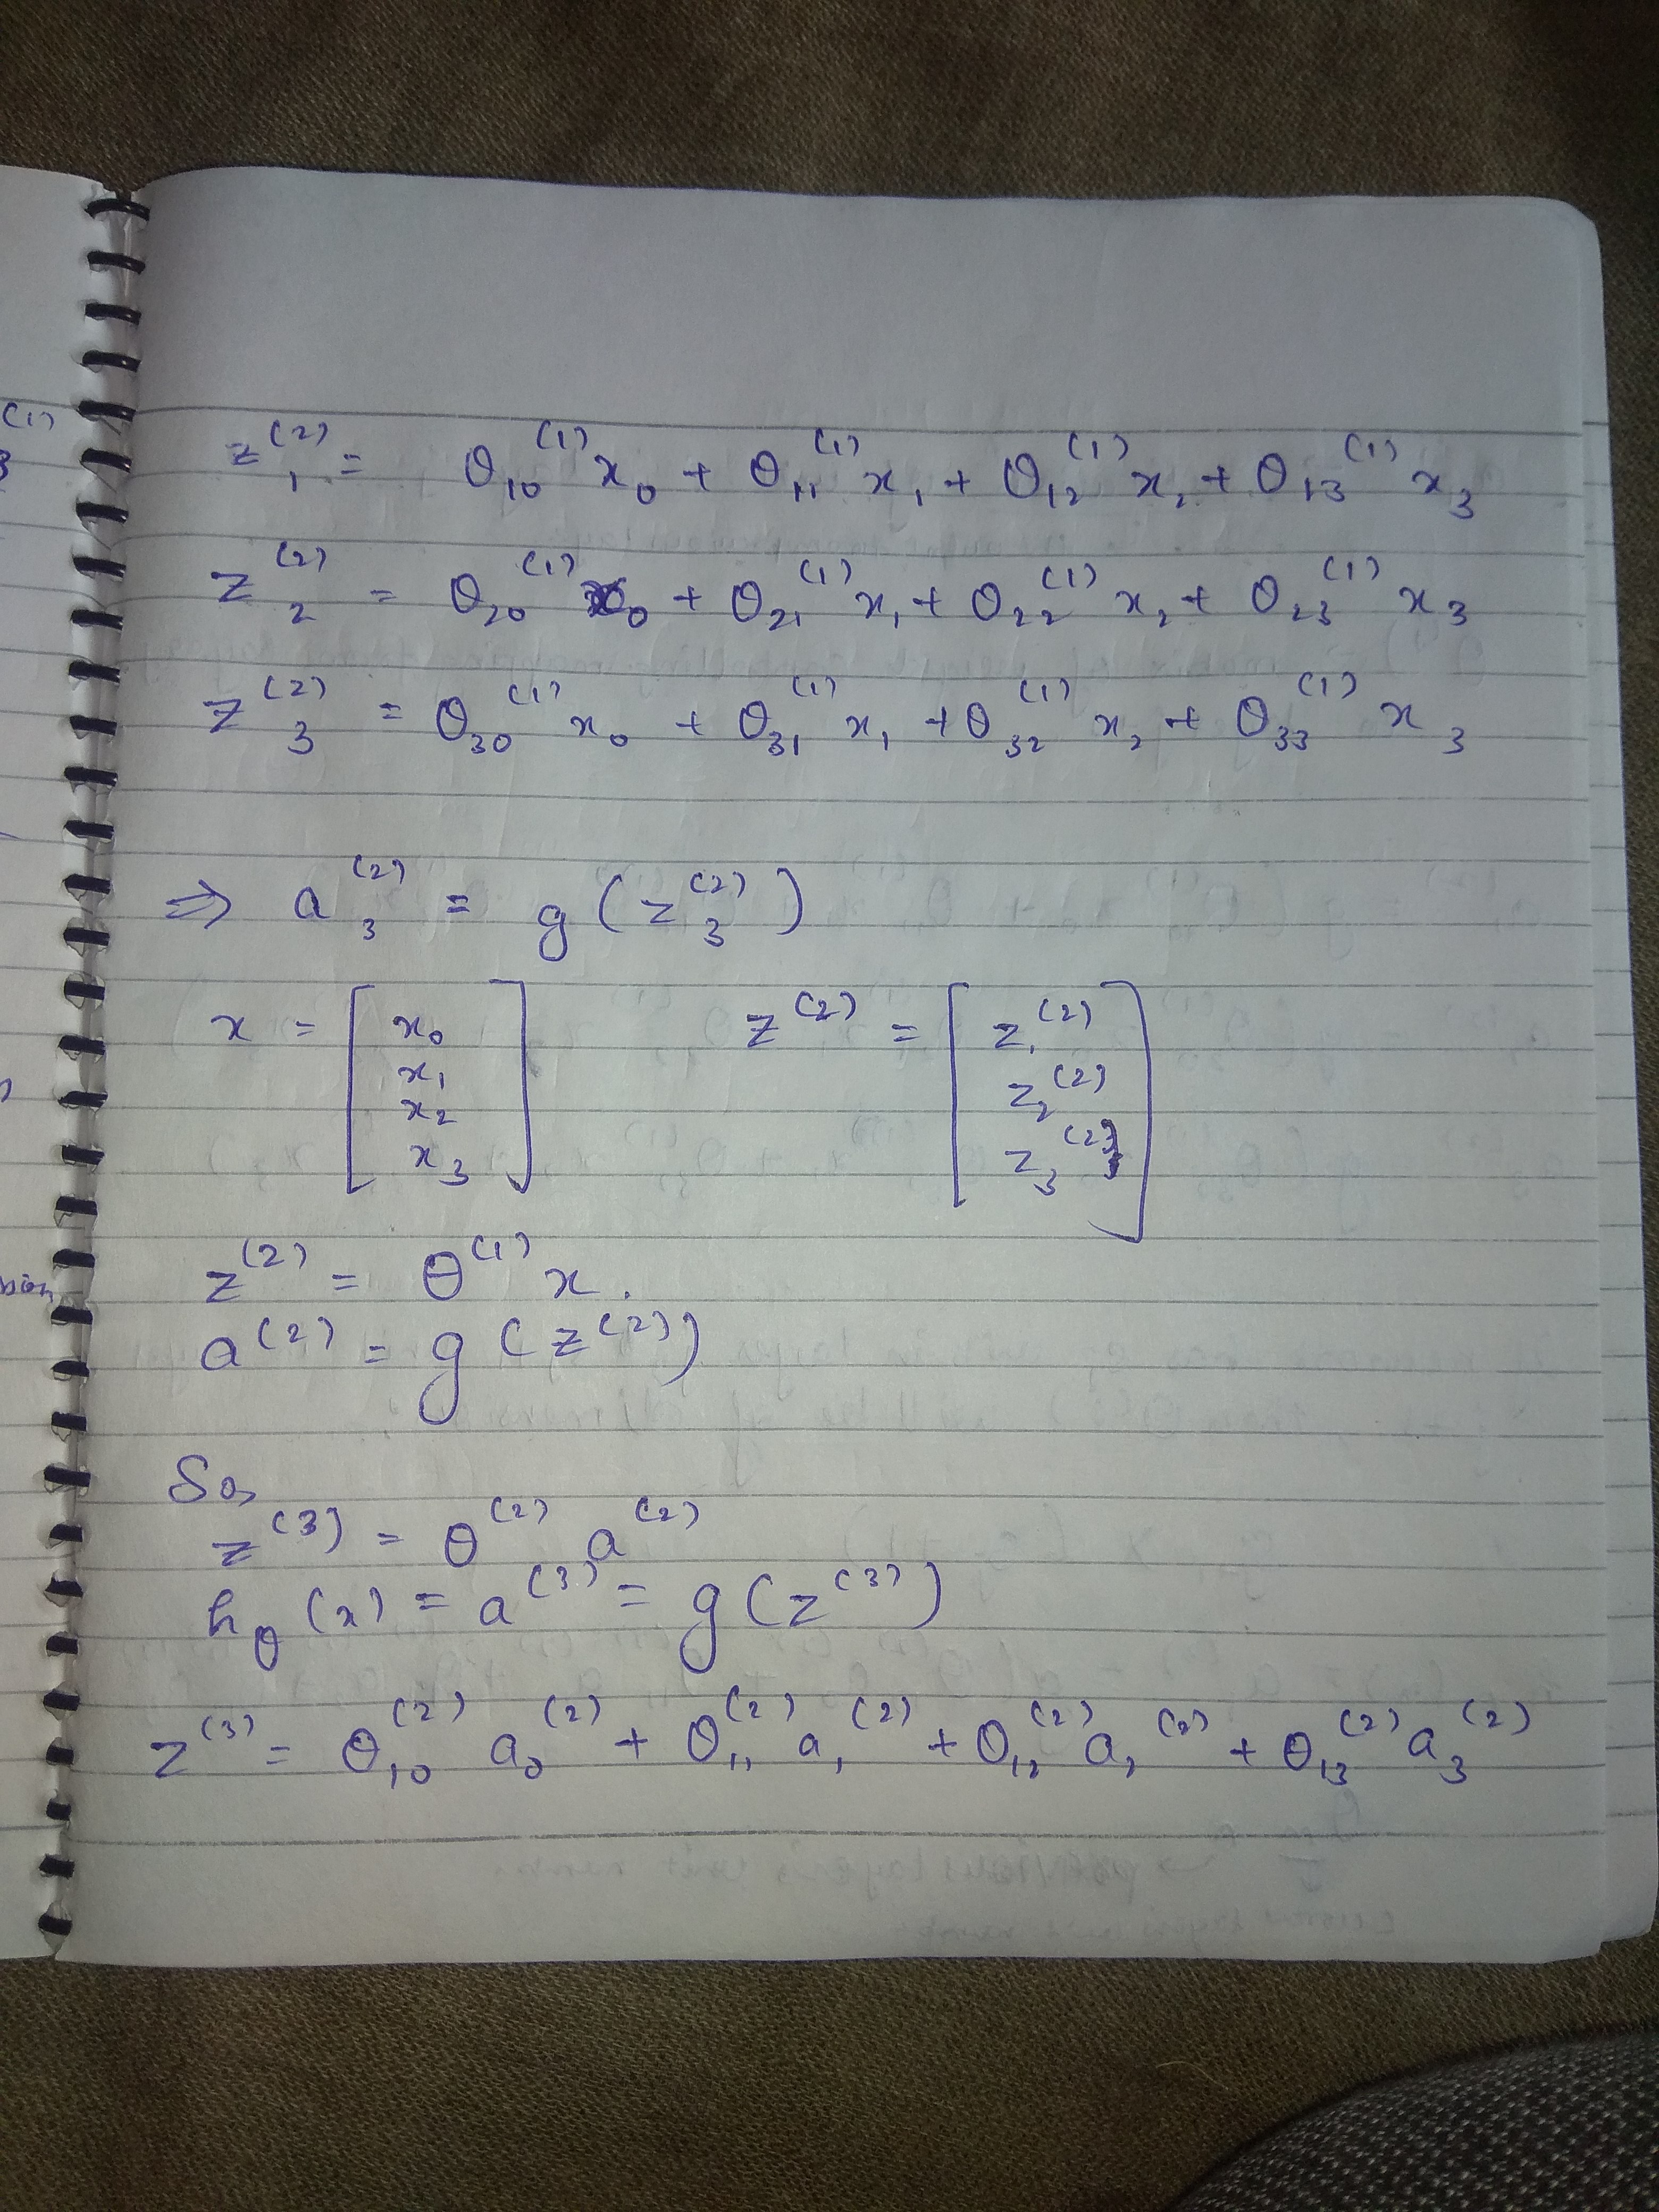 z₁⁽²⁾ = θ₁₀⁽¹⁾x₀ + θ₁₁⁽¹⁾x₁ + θ₁₂⁽¹⁾x₂ + θ₁₃⁽¹⁾x₃
z₂⁽²⁾ = θ₂₀⁽¹⁾x₀ + θ₂₁⁽¹⁾x₁ + θ₂₂⁽¹⁾x₂ + θ₂₃⁽¹⁾x₃
z₃⁽²⁾ = θ₃₀⁽¹⁾x₀ + θ₃₁⁽¹⁾x₁ + θ₃₂⁽¹⁾x₂ + θ₃₃⁽¹⁾x₃
⇒ a₃⁽²⁾ = g(z₃⁽²⁾)
x = [x₀ x₁ x₂ x₃] z⁽²⁾ = [z₁⁽²⁾ z₂⁽²⁾ z₃⁽²⁾]
z⁽²⁾ = θ⁽¹⁾x.
a⁽²⁾ = g(z⁽²⁾)
So,
z⁽³⁾ = θ⁽²⁾a⁽²⁾
h_θ(x) = a⁽³⁾ = g(z⁽³⁾)
z⁽³⁾ = θ₁₀⁽²⁾a₀⁽²⁾ + θ₁₁⁽²⁾a₁⁽²⁾ + θ₁₂⁽²⁾a₂⁽²⁾ + θ₁₃⁽²⁾a₃⁽²⁾